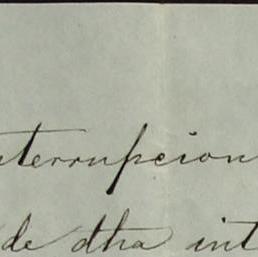 nterrupcion
de dha int